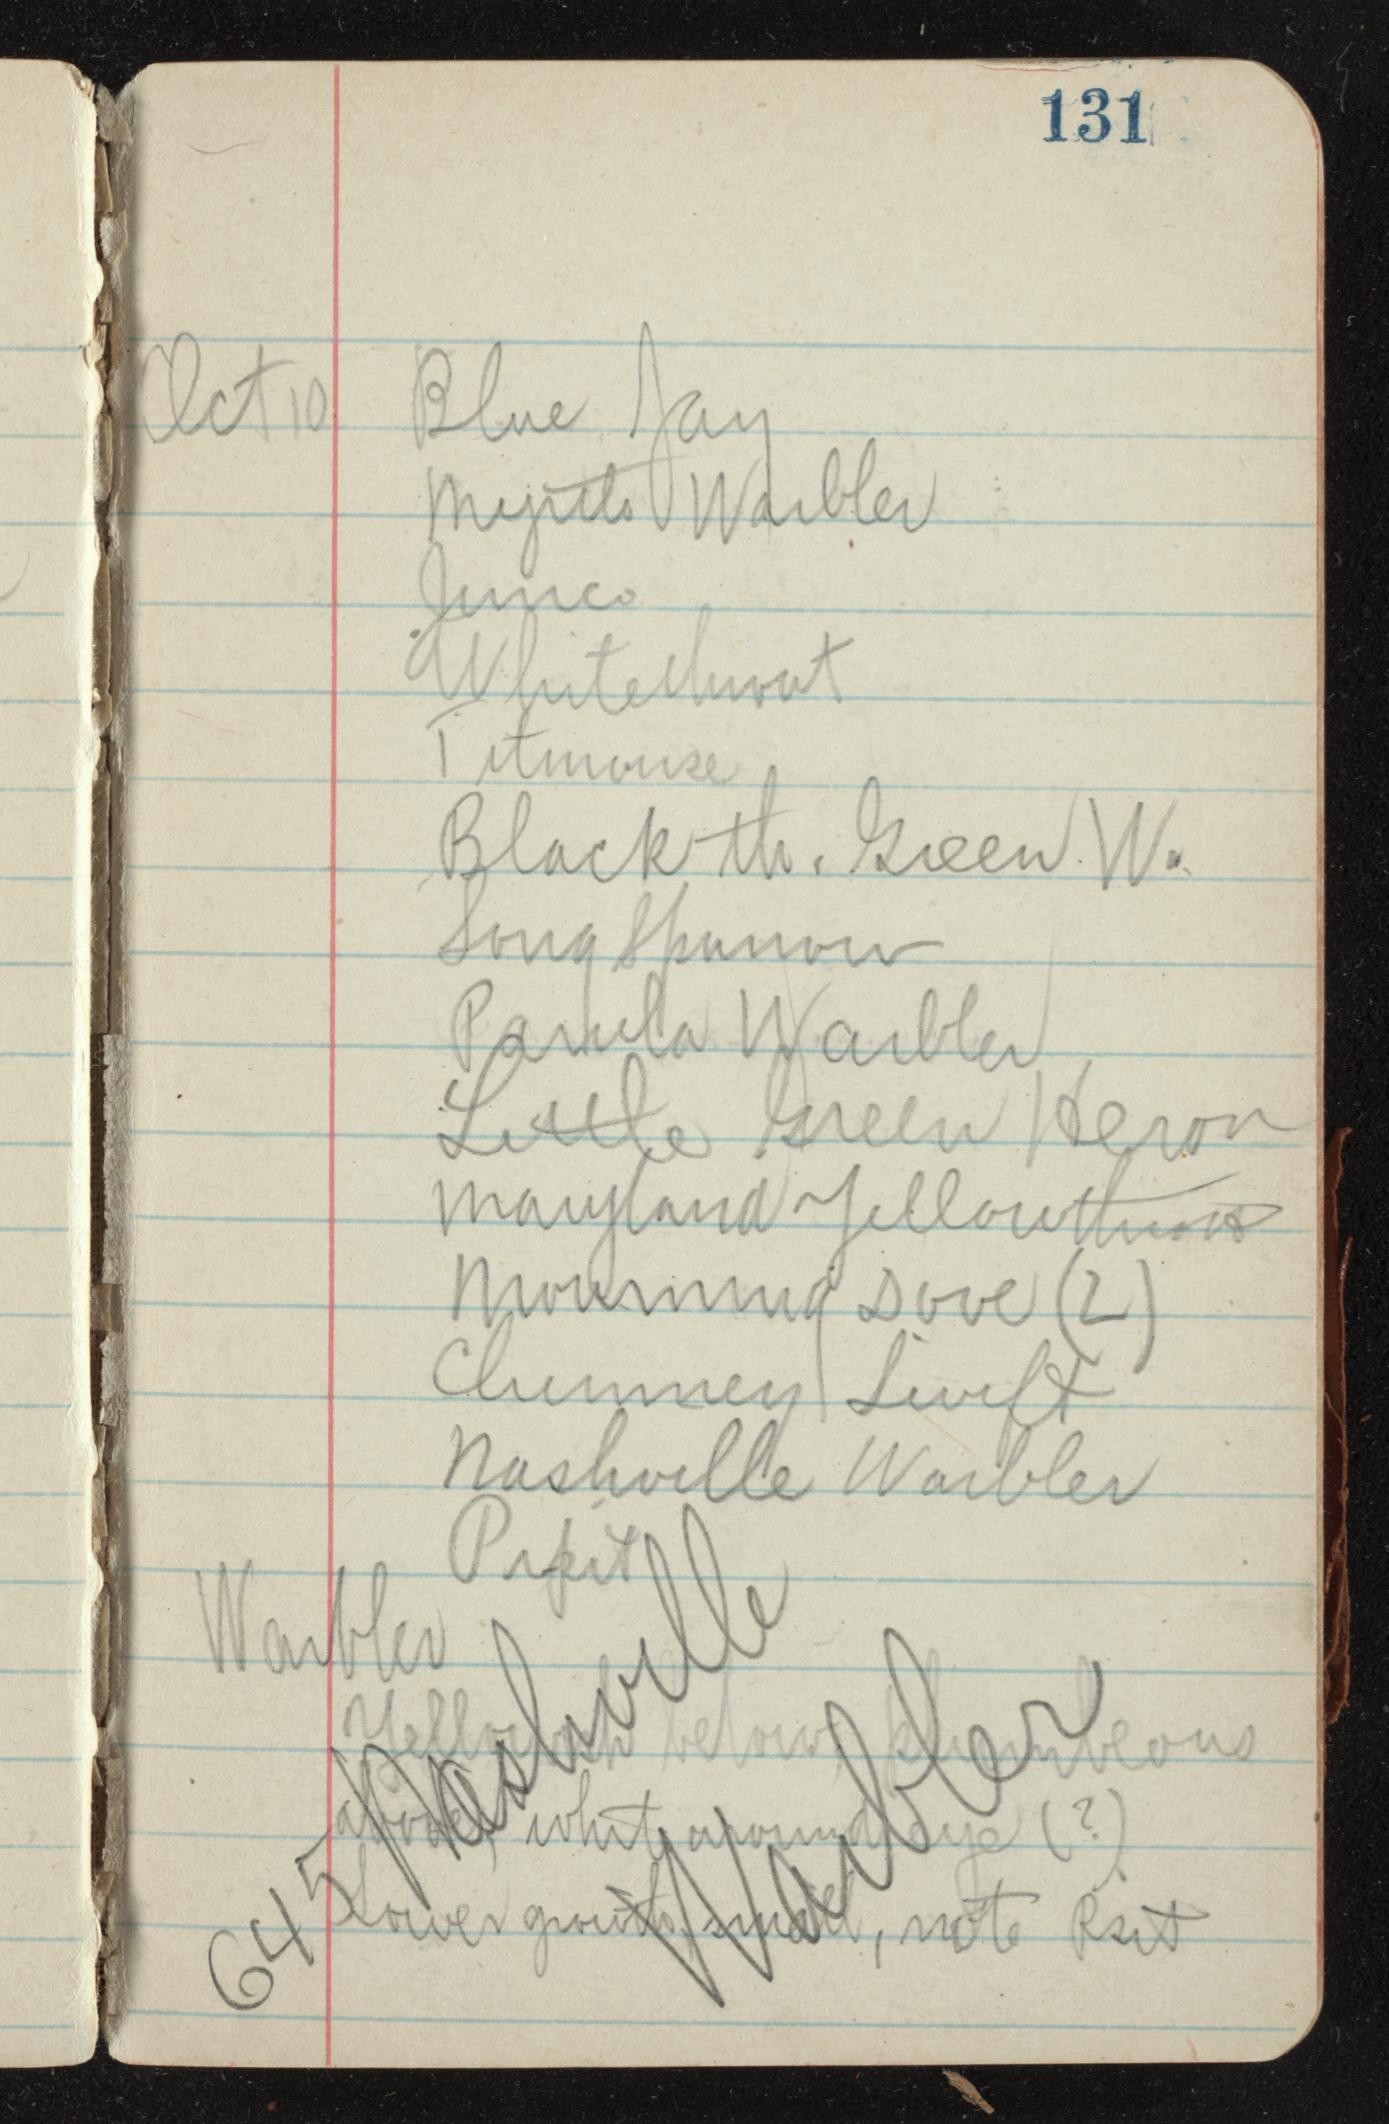 131
Oct 10 Blue Jay
Myrtle Warbler
Junco
Whitethroat
Titmouse
Black th. Green W.
Song Sparrow
Parula Warbler
Little Green Heron
Maryland Yellowthroat
Mourning Dove (2)
Chimney Swift
Nashville Warbler
Pipit
Warbler
Yellowish below, plumbeous
above, white around eye (?)
Lower growth, small, note
645 Nashville Warbler